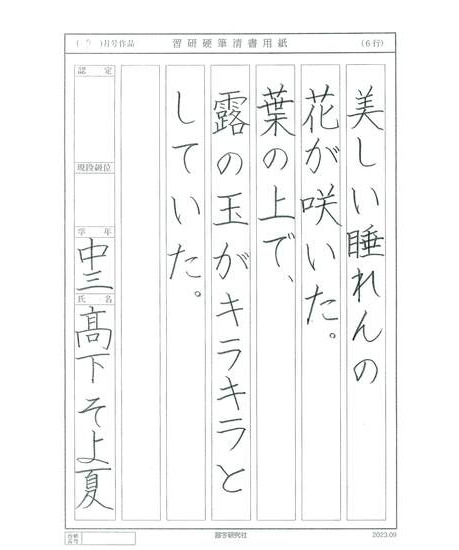 ( 7 )月号作品 習研硬筆清書用紙 (6行)
美しい睡れんの
花が咲いた。
葉の上で、
露の玉がキラキラと
していた。
認定
現段級位
学年
中三
氏名
髙下そよ夏
習字研究社
2023.09